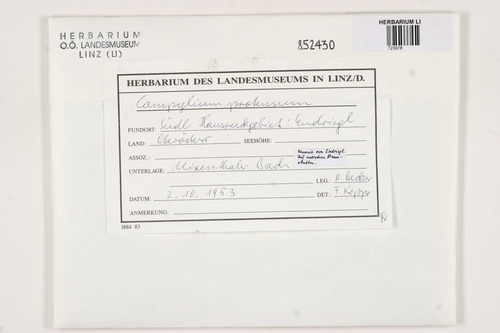 HERBARIUM
O.Ö. LANDESMUSEUM
LINZ (LI)
852430
HERBARIUM LI
723978
HERBARIUM DES LANDESMUSEUMS IN LINZ/D.
Campylium protensum
FUNDORT: Südl. Hausruckgebiet: Endriegl
LAND: Oberösterr. SEEHÖHE:
ASSOZ.:
UNTERLAGE:
LEG.: H. Becker
DATUM: 2.10.1953
DET.:
ANMERKUNG: